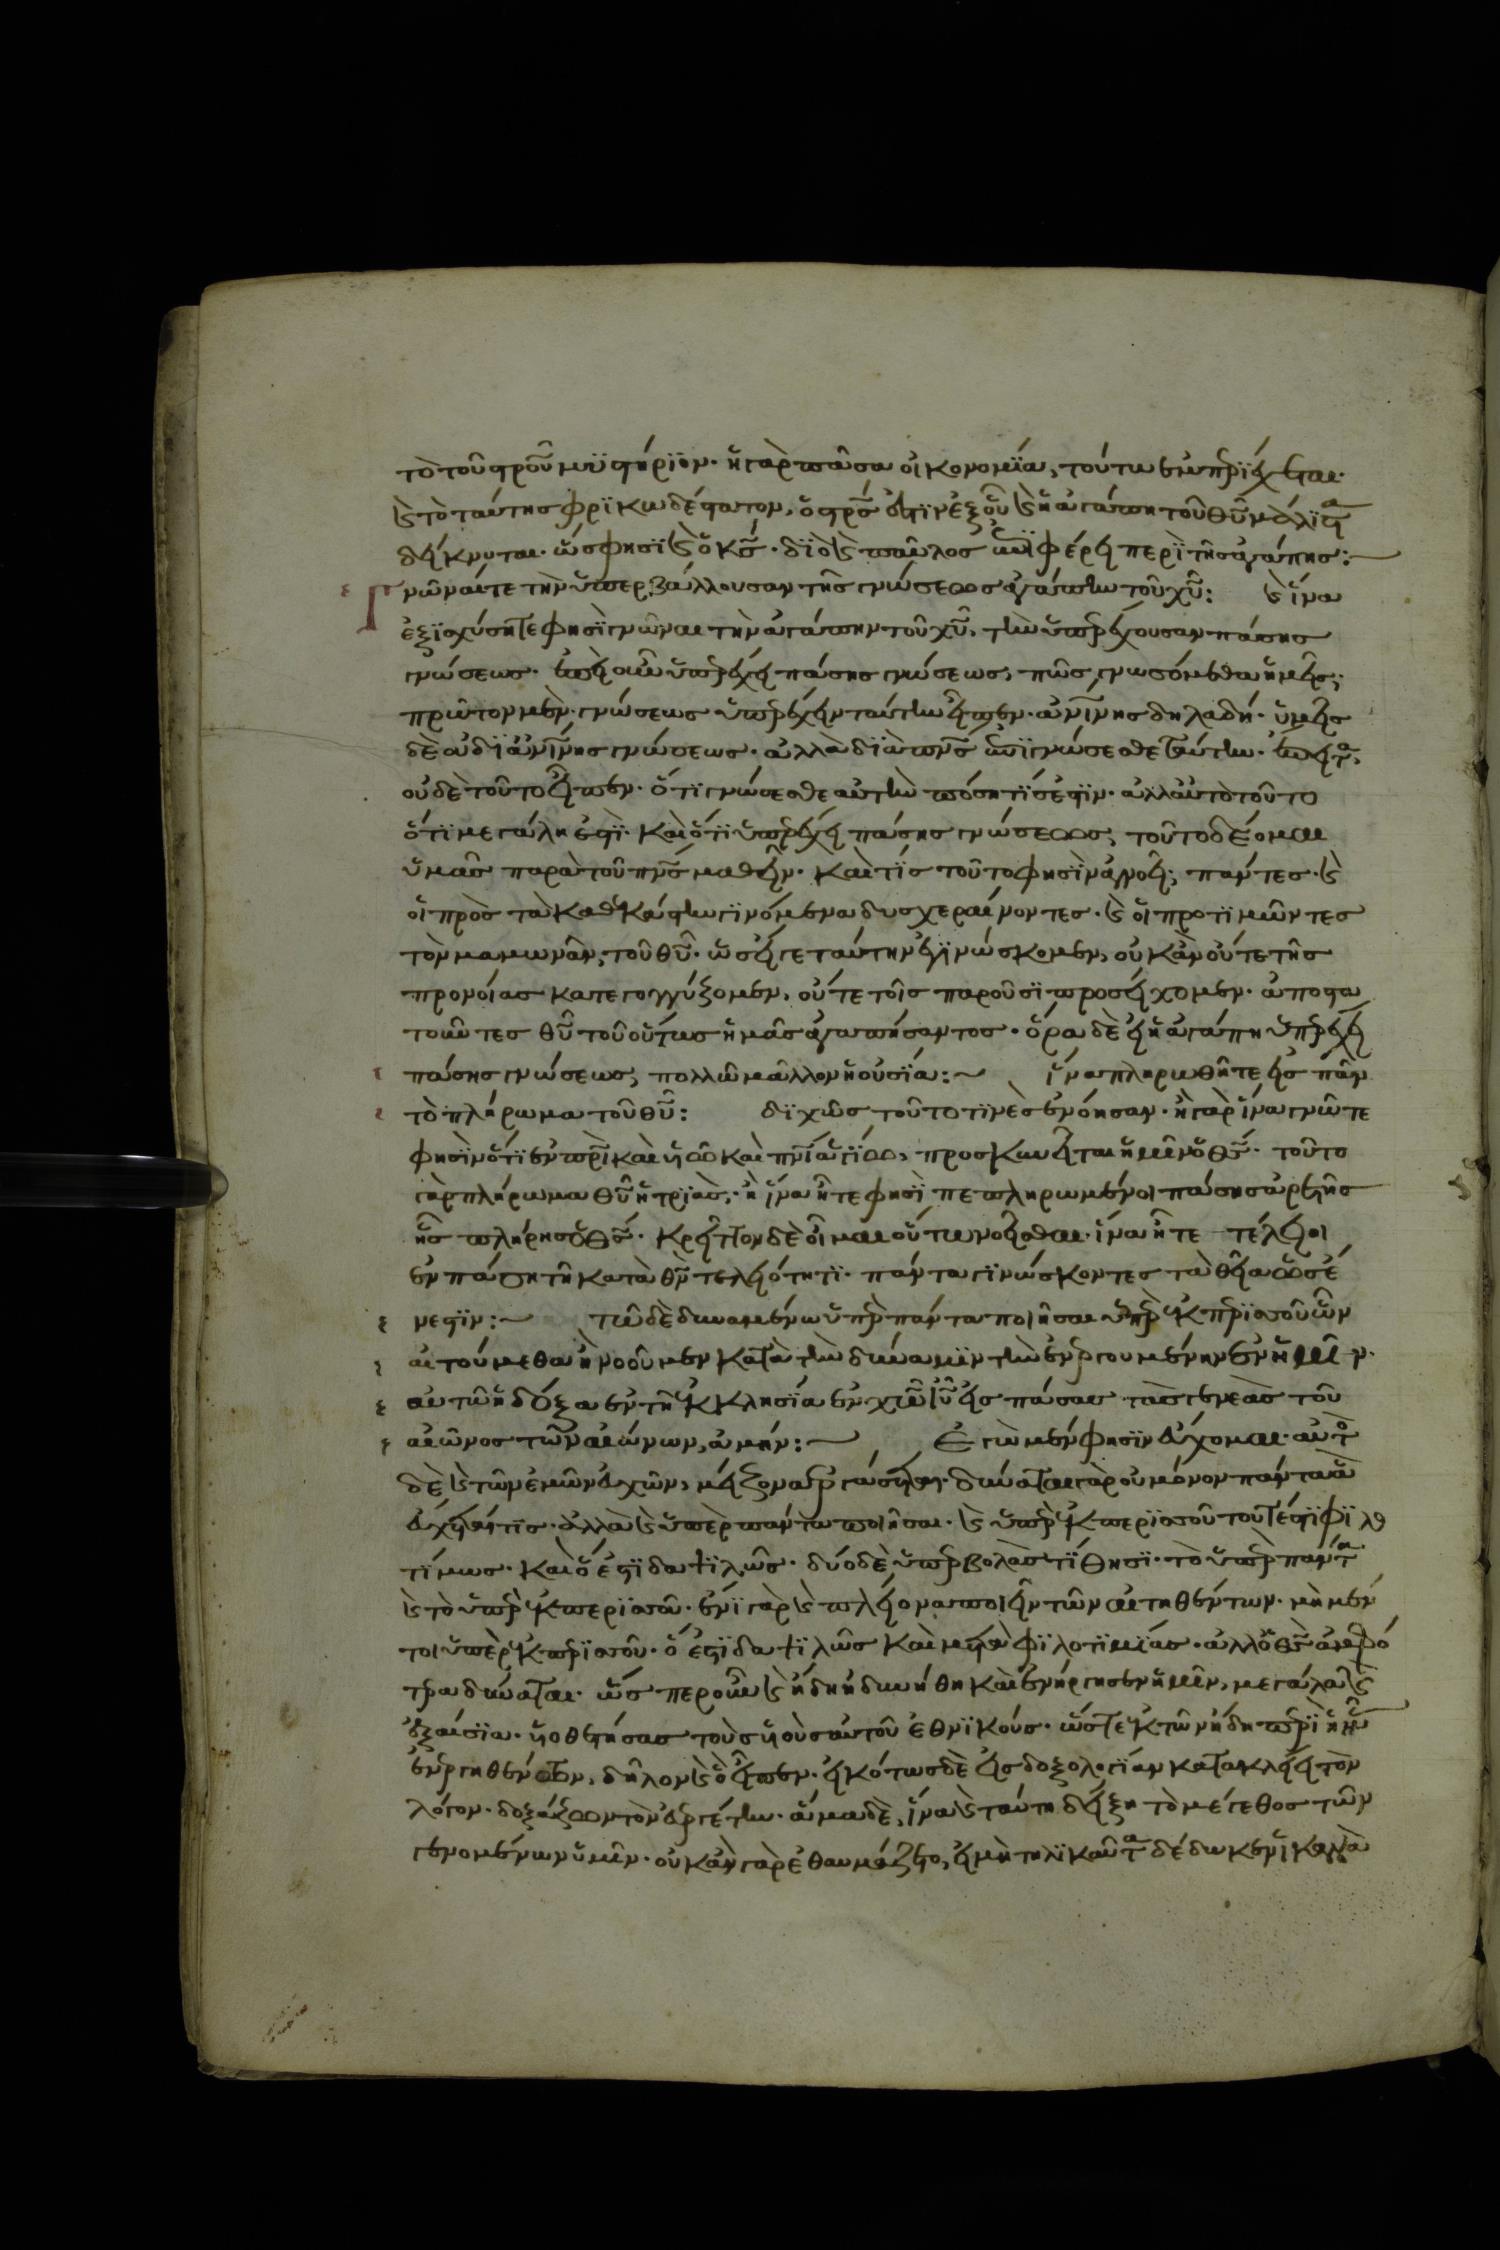 τὸ τοῦ στροῦ μυϊστήριον· ἡ γὰρ πᾶσα οἰκονομία, τούτω ἐμπεριέχεται·
καὶ τὸ ταύτης φρικωδέστατον, ὁ στρός ἐστιν ἐξ οὗ καὶ ἡ ἀγάπη τοῦ θυ μάλιστα
δείκνυται· ὥς φησι καὶ ὁ κς· διὸ καὶ παῦλος ἐπιφέρει περὶ τῆς ἀγάπης:
Γνῶναί τε τὴν ὑπερβάλλουσαν τῆς γνώσεως ἀγάπην τοῦ χυ: καὶ ἵνα
ἐξισχύσητε φησὶ γνῶναι τὴν ἀγάπην τοῦ χυ, τὴν ὑπερέχουσαν πάσης
γνώσεως· ἐπεὶ οὖν ὑπερέχει πάσης γνώσεως, πῶς γνωσόμεθα ἡμεῖς;
πρῶτον μὲν· γνώσεως ὑπερέχειν ταύτην εἶπεν· ἀνίνης δηλαδή· ὑμεῖς
δὲ οὐ δι' ἀνίνης γνώσεως· ἀλλὰ διὰ πνς ἁγίου γνώσεσθε ταύτην· ἔπειτα
οὐδὲ τοῦτο εἶπεν· ὅτι γνώσεσθε αὐτὴν πόση τίς ἐστιν· ἀλλ' αὐτὸ τοῦτο
ὅτι μεγάλη ἐστὶ· καὶ ὅτι ὑπερέχει πάσης γνώσεως, τοῦτο δέομαι
ὑμᾶς παρὰ τοῦ πνς μαθεῖν· καὶ τίς τοῦτο φησὶν ἀγνοεῖ; πάντες· καὶ
οἱ πρὸς τὰ καθ' ἑκάστην γινόμενα δυσχεραίνοντες· καὶ οἱ προτιμῶντες
τὸν μαμωνᾶν, τοῦ θυ· ὡς εἴγε ταύτην ἐγινώσκομεν, οὐκ ἂν οὔτε τῆς
προνοίας κατεγογγύζομεν, οὔτε τοῖς παροῦσι προσείχομεν· ἀποστα
τοῦντες θυ τοῦ οὕτως ἡμᾶς ἀγαπήσαντος· ὅρα δὲ εἰ ἡ ἀγάπη ὑπερέχει
πάσης γνώσεως, πολλῶ μᾶλλον ἡ οὐσία: ἵνα πληρωθῆτε εἰς πᾶν
τὸ πλήρωμα τοῦ θυ: διχῶς τοῦτο τινὲς ἐνόησαν· ἢ γὰρ ἵνα γνῶτε
φησὶν ὅτι ἐν πρὶ καὶ υἱῶ καὶ πνι ἁγίω, προσκυνεῖται ἡμῖν ὁ θς· τοῦτο
γὰρ πλήρωμα θυ ἡ τριάς· ἢ ἵνα ἦτε φησὶ πεπληρωμένοι πάσης ἀρετῆς
ἧς πλήρης ὁ θς· κρεῖττον δὲ οἶμαι οὕτω νοεῖσθαι· ἵνα ἦτε τέλειοι
ἐν πάση τῆ κατὰ θν τελειότητι· πάντα γινώσκοντες τὰ θεῖα ὡς ἔ
νεστιν: τῶ δὲ δυναμένω ὑπὲρ πάντα ποιῆσαι ὑπὲρ ἐκ περισσοῦ ὧν
αἰτούμεθα ἢ νοοῦμεν κατὰ τὴν δύναμιν τὴν ἐνεργουμένην ἐν ἡμῖν·
αὐτῶ ἡ δόξα ἐν τῆ ἐκκλησία ἐν χω ιυ εἰς πάσας τὰς γενεὰς τοῦ
αἰῶνος τῶν αἰώνων, ἀμήν: Ἐγὼ μὲν φησὶν εὔχομαι· αὐτὸς
δὲ καὶ τῶν ἐμῶν εὐχῶν, μείζονα ἐργάσεται· δύναται γὰρ οὐ μόνον πάντα ἃ
εὔχεταί τις· ἀλλὰ καὶ ὑπὲρ πάντα ποιῆσαι· καὶ ὑπὲρ ἐκ περισσοῦ τουτέστι φιλο
τίμως· καὶ ὅ ἐστι δαψιλῶς· δύο δὲ ὑπερβολὰς τίθησι· τὸ ὑπὲρ πάντα
καὶ τὸ ὑπὲρ ἐκ περισσοῦ· ἔνι γὰρ καὶ πλείονα ποιεῖν τῶν αἰτηθέντων· μὴ μέν
τοι ὑπὲρ ἐκ περισσοῦ· ὅ ἐστι δαψιλῶς καὶ μετὰ φιλοτιμίας· ἀλλ' ὁ θς ἀμφό
τερα δύναται· ὥσπερ οὖν καὶ ἤδη ἠδυνήθη καὶ ἐνήργησεν ἡμῖν, μεγάλα καὶ
ἐξαίσια· υἱοθετήσας τοὺς υἱοὺς αὐτοῦ ἐθνικούς· ὥστε ἐκ τῶν ἤδη περὶ ἡμῶν
ἐνεργηθέντων, δῆλον καὶ ὃ εἶπεν· εἰκότως δὲ εἰς δοξολογίαν κατακλείει τὸν
λόγον· δοξάζων τὸν εὐεργέτην· ἅμα δὲ, ἵνα καὶ ταύτη δείξη τὸ μέγεθος τῶν
γενομένων ὑμῖν· οὐκ ἂν γὰρ ἐθαυμάζετο, εἰ μὴ τηλικαῦτα δέδωκεν ἡμῖν καλὰ